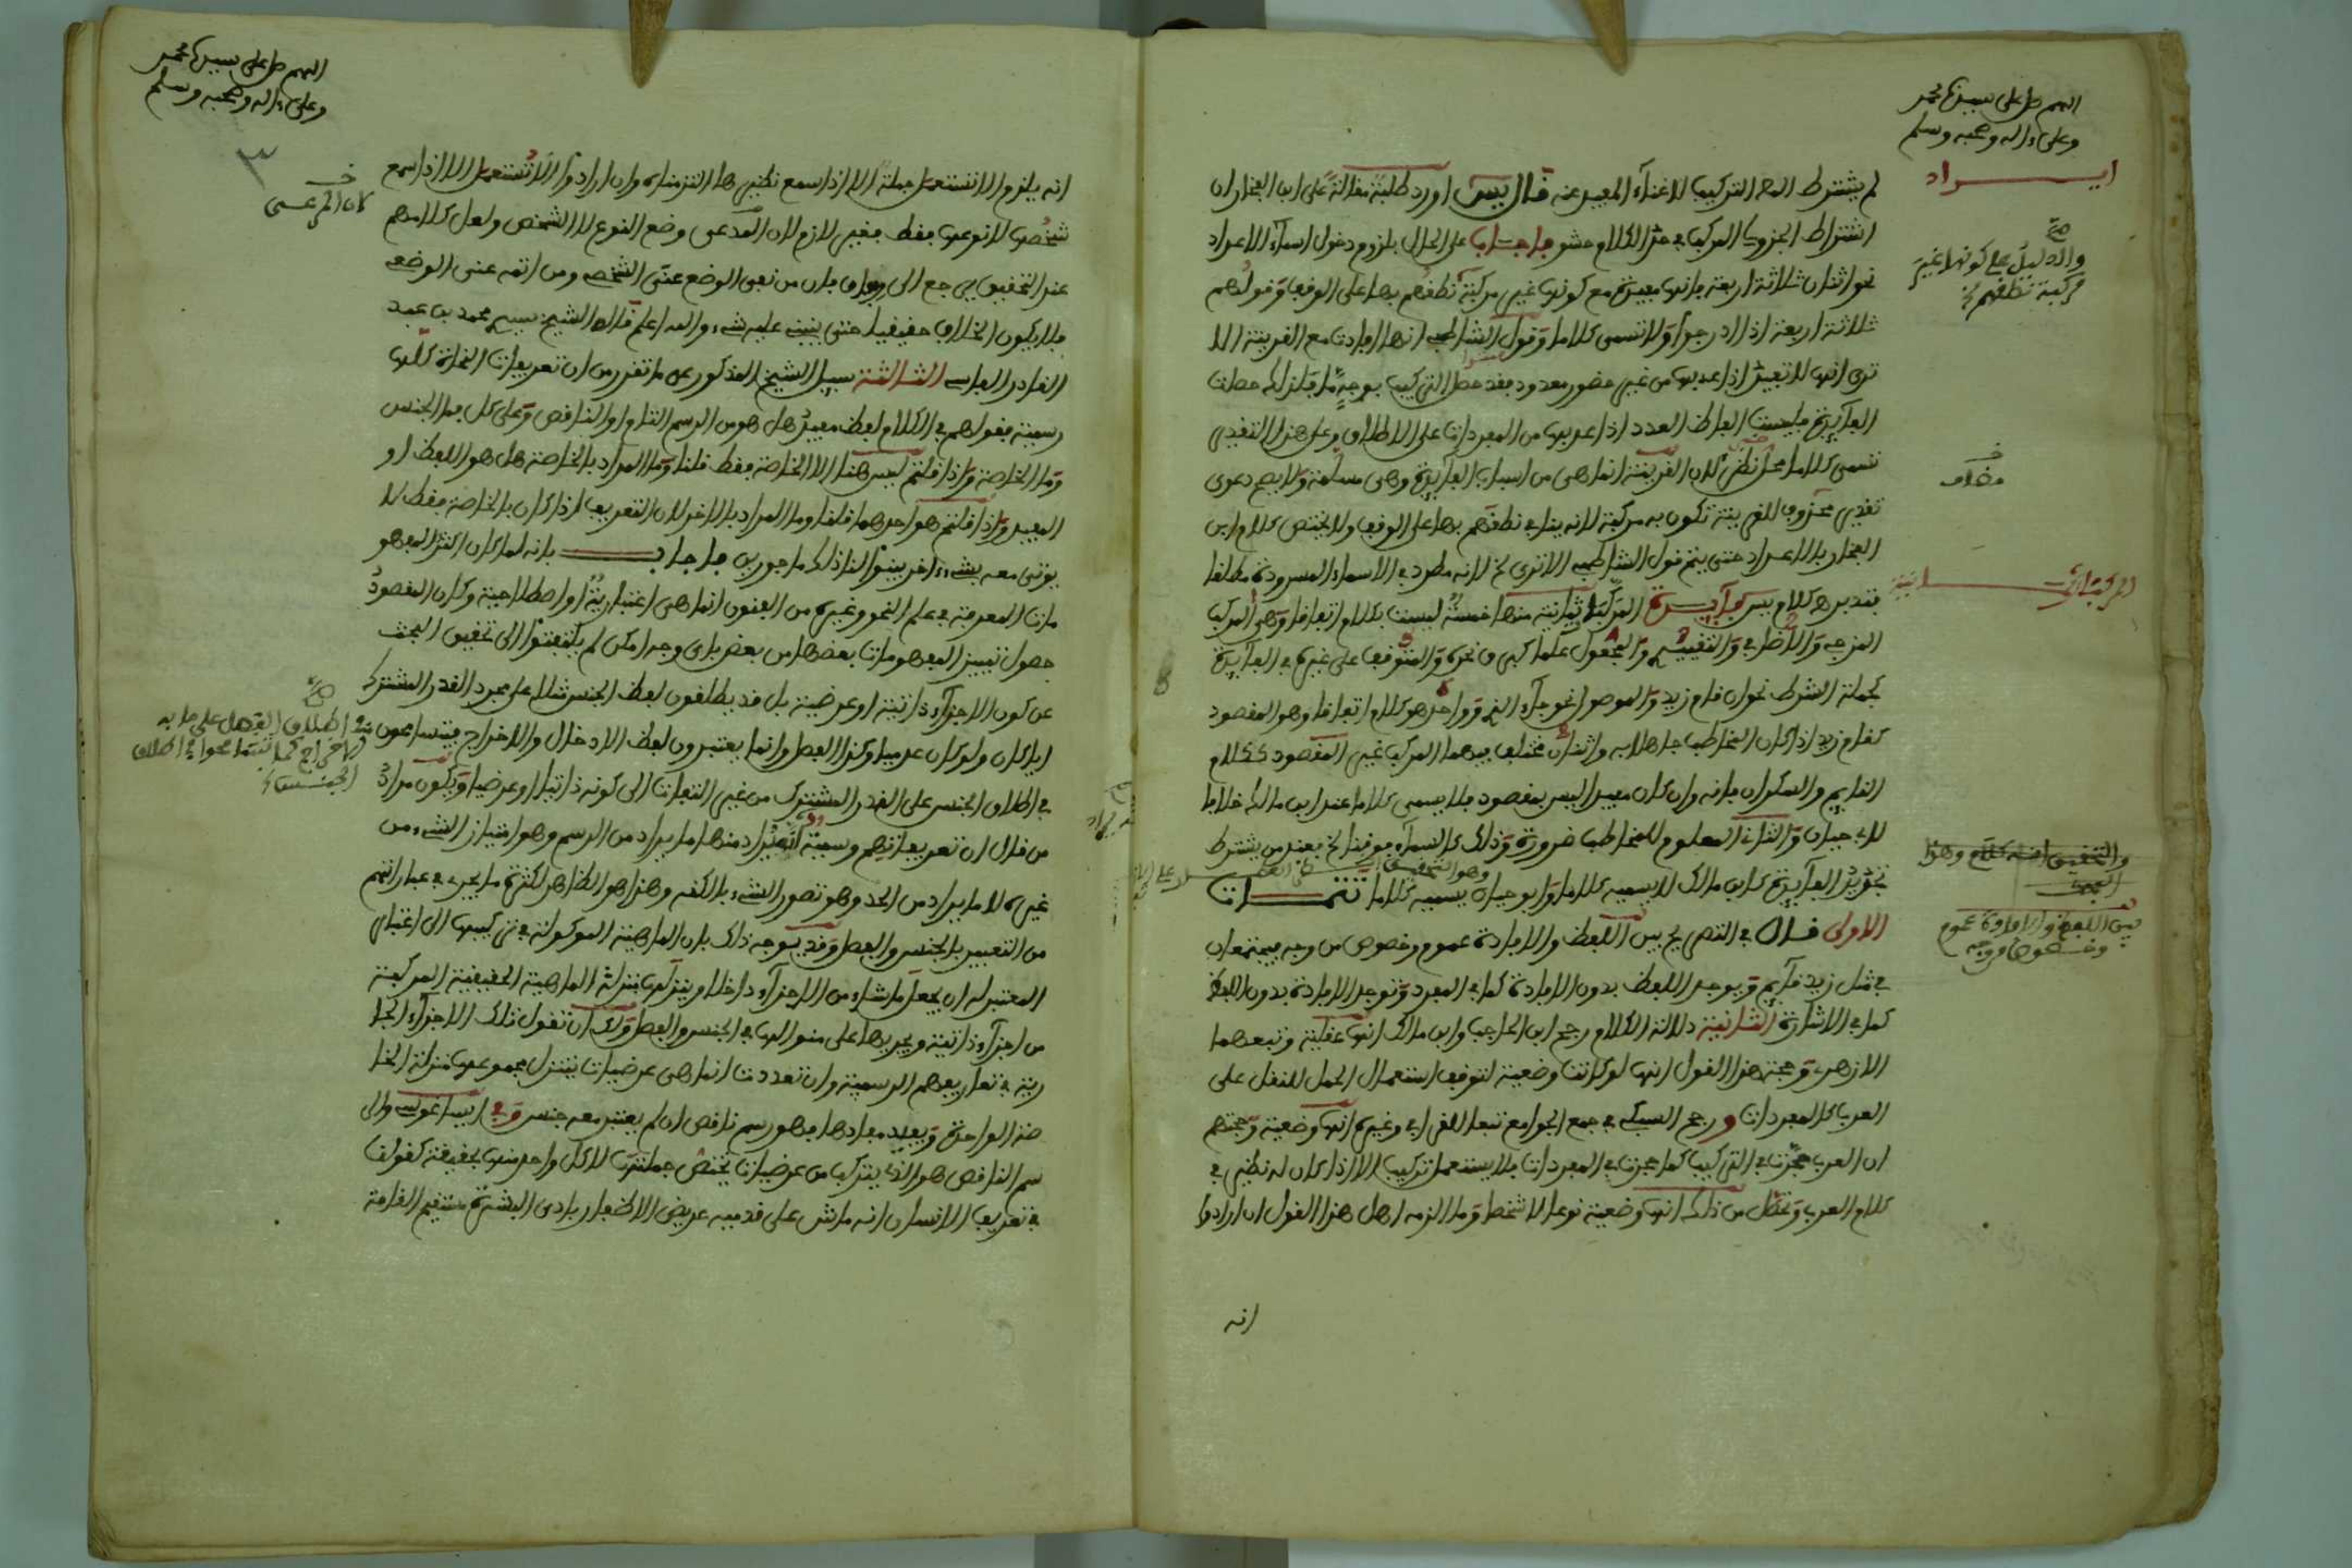 اللهم صل على سيدنا محمد
وعلى ءاله وصحبه وسلم
ايراد
لم يشترط التركيب للاغناء المفيد عنه قال يس اورد طلبة مقالة على ابن الفخار ان
اشتراط الجزولي المركب في حد الكلام حشو فاجاب على الحال بلزوم دخول اسماء الاعداد
نحو اثنان ثلاثة اربعة فانها مفيدة مع كونها غير مركبة نطقهم بها على الوقف وقولهم
ثلاثة اربعة اذا ادرجوا ولا تسمى كلاما وقول الشاطبي انها افادت مع القرينة الا
ترى انها لا تفيد اذا عدها من غير حضور معدود فقد حصل التركيب بوجه ما قلنا حصلت
الفايدة فليست الفاظ العدد اذا عريت من المفردات على الاطلاق وعلى هذا التقدير
تسمى كلاما محل نظر لان القرينة انما هي من اسباب الفايدة وهي مسلمة ولا يصح دعوى
تقدير محذوف للقرينة تكون به مركبة لانه ينافي نطقهم بها على الوقف ولا يختص كلام ابن
الفخار بالاعداد حتى يتم قول الشاطبي الا ترى الخ لانه مطرد في الاسماء المسرودة مطلقا
فتدبر هـ كلام يس فايدة المركبات ثمانية منها خمسة ليست بكلام اتفاقا وهي المركب
المزجي والاضافي والتقييدي والمجعول علما كبرق نحره والمتوقف على غيره في الفايدة
كجملة الشرط نحو ان قام زيد والموصول نحو جاء الذي وواحد هو كلام اتفاقا وهو المقصود
كقام زيد اذا كان المخاطب جاهلا به واثنان مختلف فيهما المركب غير المقصود ككلام
النايم والسكران فانه وان كان مفيدا ليس بمقصود فلا يسمى كلاما عند ابن مالك خلافا
لابي حيان والثاني المعلوم للمخاطب ضرورة وذلك كالسماء فوقنا الخ فعند من يشترط
تجديد الفايدة كابن مالك لا يسميه كلاما وابو حيان يسميه كلاما تتمات
الاولى قال في التصريح بين اللفظ والافادة عموم وخصوص من وجه فيجتمعان
في مثل زيد قايم ويوجد اللفظ بدون الافادة كما في المفرد وتوجد الافادة بدون اللفظ
كما في الاشارة الثانية دلالة الكلام رجح ابن الحاجب وابن مالك انها عقلية وتبعهما
الازهري وحجة هذا القول انها لو كانت وضعية لتوقف استعمال الجمل للنقل على
العرب كالمفردات ورجح السبكي في جمع الجوامع تبعا للقرافي وغيره انها وضعية وحجتهم
ان العرب حجرت في التركيب كما حجرت في المفردات فلا يستعمل تركيب الا اذا كان له نظير في
كلام العرب وتحصل من ذلك انها وضعية نوعا لا شخصا وما الزمه اهل هذا القول ان ارادوا
انه
صح
والدليل على كونها غير
مركبة نطقهم الخ
مضاف
المركبات ثمانية
والتحقيق انه كلام وهذا
بين اللفظ والافادة عموم
وخصوص من وجه
اللهم صل على سيدنا محمد
وعلى ءاله وصحبه وسلم
٣
انه يلزم الا تستعمل جملة الا اذا سمع نظيرها التزمناه وان ارادوا الا تستعمل الا اذا سمع
شخصها لا نوعها فقط فغير لازم لان المدعى وضع النوع لا الشخص ولعل كلامهم
عند التحقيق يرجع الى وفاق فان من نفى الوضع عنى الشخصي ومن اثبته عنى الوضعي
فلا يكون الخلاف حقيقيا حتى يبنى عليه شيء والله اعلم قاله الشيخ سيدي محمد بن عبد
القادر الفاسي الثالثة سيل الشيخ المذكور عن ما تقرر من ان تعريفات النحاة كلها
رسمية فقولهم في الكلام لفظ مفيد هل هو من الرسم التام او الناقص وعلى كل فما الجنس
وما الخاصة واذا قلتم ليس هنا الا الخاصة فقط قلنا وما المراد بالخاصة هل هو اللفظ او
المفيد واذا قلتم هو احدهما قلنا وما المراد بالاخر لان التعريف اذا كان بالخاصة فقط لا
يوتى معه بشيء ءاخر بينوا لنا ذلك ماجورين فاجاب بانه لما كان اكثر المفهو
مات المعرفة في علم النحو وغيره من الفنون انما هي اعتبارية او اصطلاحية وكان المقصود
حصول تمييز المفهومات بعضها من بعض باي وجه امكن لم يلتفتوا الى تحقيق البحث
عن كون الاجزاء ذاتية او عرضية بل قد يطلقون لفظ الجنس مثلا على مجرد القدر المشترك
ايا كان ولو كان عدميا وكذا الفصل وانما يعتبرون لفظ الادخال والاخراج فيتسامحون
في اطلاق الجنس على القدر المشترك من غير التفات الى كونه ذاتيا او عرضيا ويكون مراد
من قال ان تعريفاتهم رسمية انه يراد منها ما يراد من الرسم وهو امتياز الشيء من
غيره لا ما يراد من الحد وهو تصور الشيء بالكنه وهذا هو الظاهر لكثرة ما يجرى في عباراتهم
من التعبير بالجنس والفصل وقد يوجه ذلك بان الماهية الموكولة في تركيبها الى اعتبار
المعتبر له ان يجعل ما شاء من الاجزاء داخلا وينزلها منزلة الماهية الحقيقية المركبة
من اجزاء ذاتية ويجريها على منوالها في الجنس والفصل ولك ان تقول تلك الاجزاء الجا
رية في تعاريفهم الرسمية وان تعددت انما هي عرضيات يتنزل مجموعها منزلة الخا
صة الواحدة ويفيد مفادها فهو رسم ناقص ان لم يعتبر معه جنس وفي ايساغوجي والر
سم الناقص هو الذي يتركب من عرضيات تختص جملتها لا كل واحد منها بحقيقة كقولنا
في تعريف الانسان انه ماش على قدميه عريض الاظفار بادي البشرة مستقيم القامة
اطلاق الفصل على ما به
الاخراج كما تسامحوا في اطلاق
الجنس